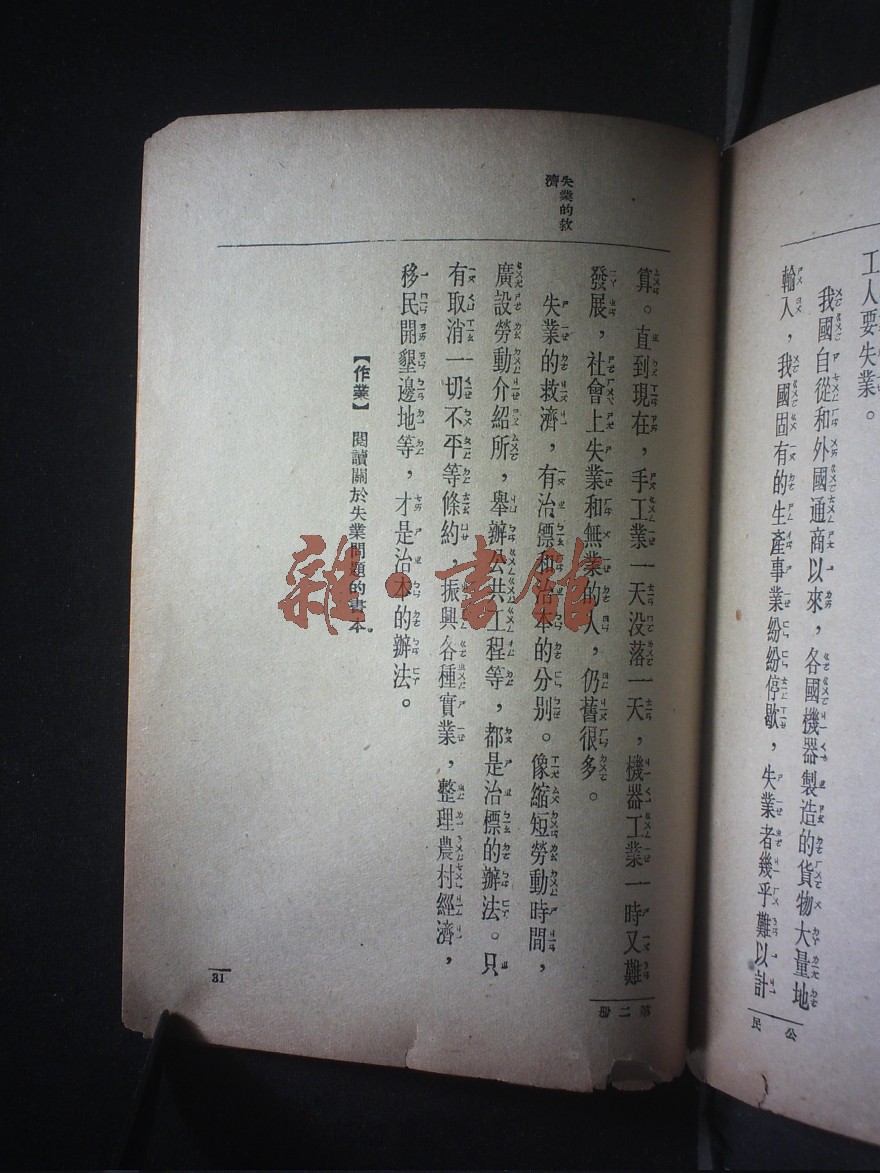 工人要失業。
我國自從和外國通商以來，各國機器製造的貨物大量地
輸入，我國固有的生產事業紛紛停歇，失業者幾乎難以計
公民
失業的救濟
算。直到現在，手工業一天没落一天，機器工業一時又難
發展，社會上失業和無業的人，仍舊很多。
失業的救濟，有治標和治本的分别。像縮短勞動時間，
廣設勞動介紹所，舉辦公共工程等，都是治標的辦法。只
有取消一切不平等條約，振興各種實業，整理農村經濟，
移民開墾邊地等，才是治本的辦法。
【作業】 閱讀關於失業問題的書本。
第二册
31
雜·書館